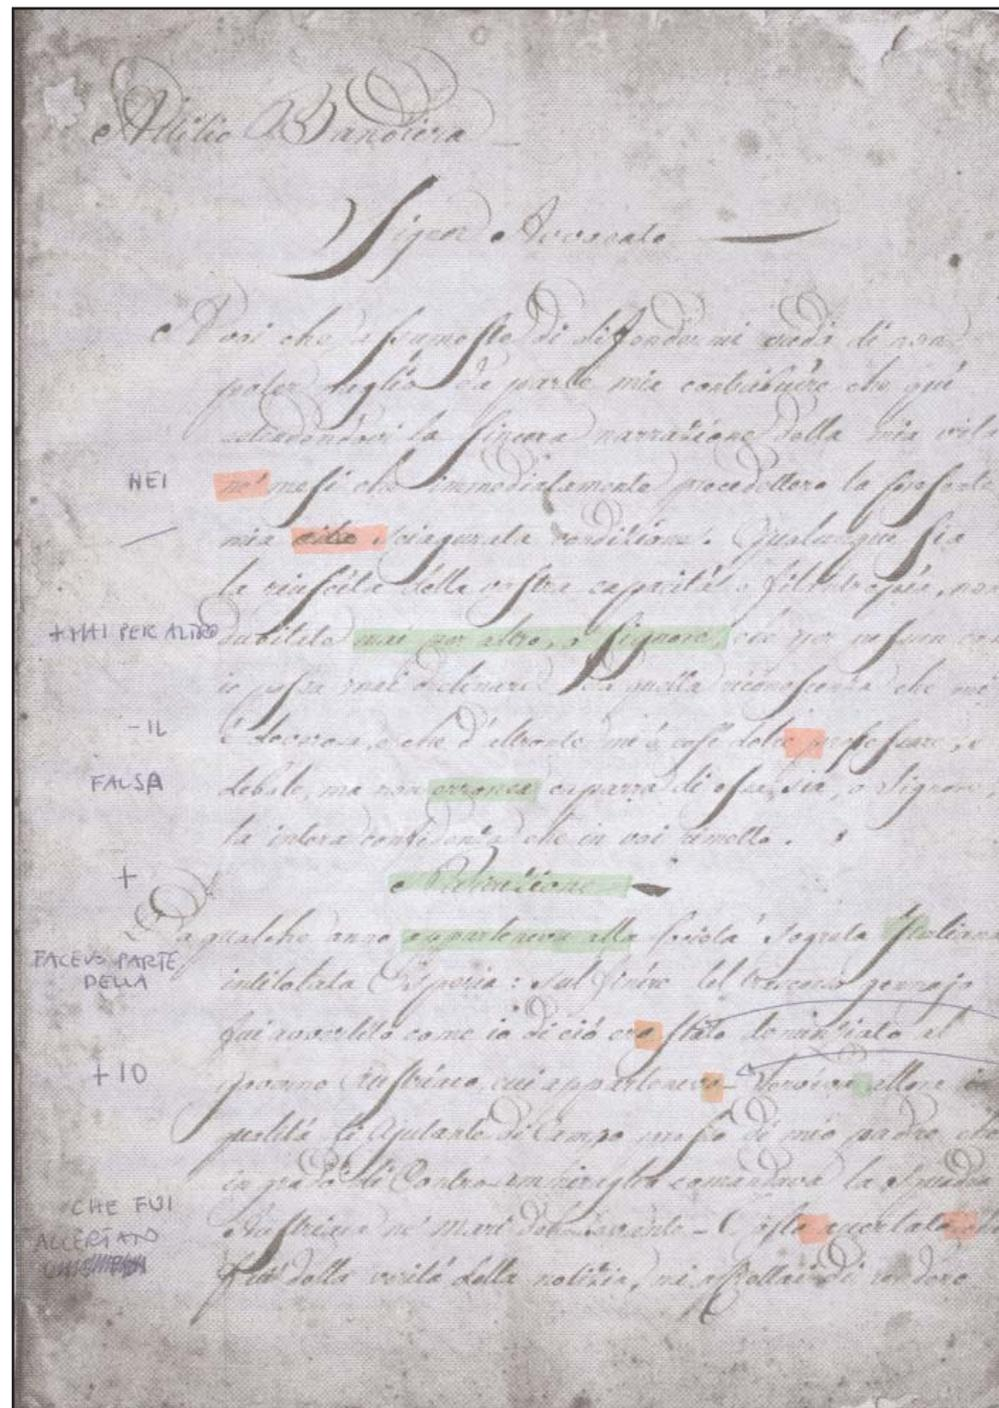 Attilio Bandiera
Signor Avvocato
A voi che assumeste di difendermi credo di non
poter meglio da parte mia contribuire che quì
stendendovi la sincera narrazione della mia vita
NEI
ne' mesi che immediatamente precedettero la presente
mia sciagurata condizione. Qualunque sia
la riuscita della vostra capacità e filantropia, non
+MAI PER ALTRO
dubitate mai per altro, o Signore, che per nessun
io possa mai declinare da quella riconoscenza che mi
-IL
è doverosa, e che d'altronde mi è così dolce professare, e
FALSA
debole, ma non erronea caparra di essa, sia, o Signore,
la intera confidenza che in voi rimetto.
+
Narrazione
Da qualche anno apparteneva alla società segreta Italiana
FACEVO PARTE
DELLA
intitolata Esperia: Sul finire del trascorso gennajo
fui avvertito come io di ciò era stato denunziato al
+IO
governo Austriaco, cui apparteneva - Serviva allora in
qualità di Ajutante di Campo presso di mio padre che
in grado di Contro-ammiraglio comandava la squadra
CHE FUI
ALLERTATO
Austriaca ne' mari del Levante - Così
fui della verità della notizia, mi affrettai di rendere